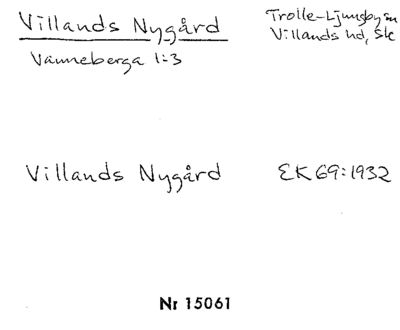 Villands Nygård
Vanneberga 1:3
Trolle-Ljungby sn
Villands hd, Sk
Villands Nygård
EK 69:1932
Nr 15061